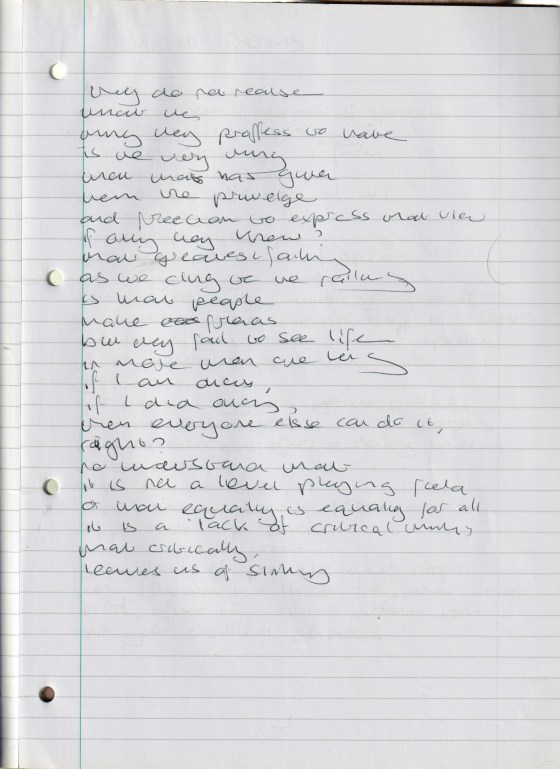 they do not realise
that the
thing they proffess to hate
is the very thing
that has given
them the privelge
and freedom to express that view
if only they knew?
that greatest failing
as we cling to the railing
is that people
make friends
but they fail to see life
in more than one
if I can
if I did
then everyone else can do it,
right?
no understand that
it is not a level playing field
or that equality is equality for all
it is a lack of critical thinking
that critically,
leaves us of sinking